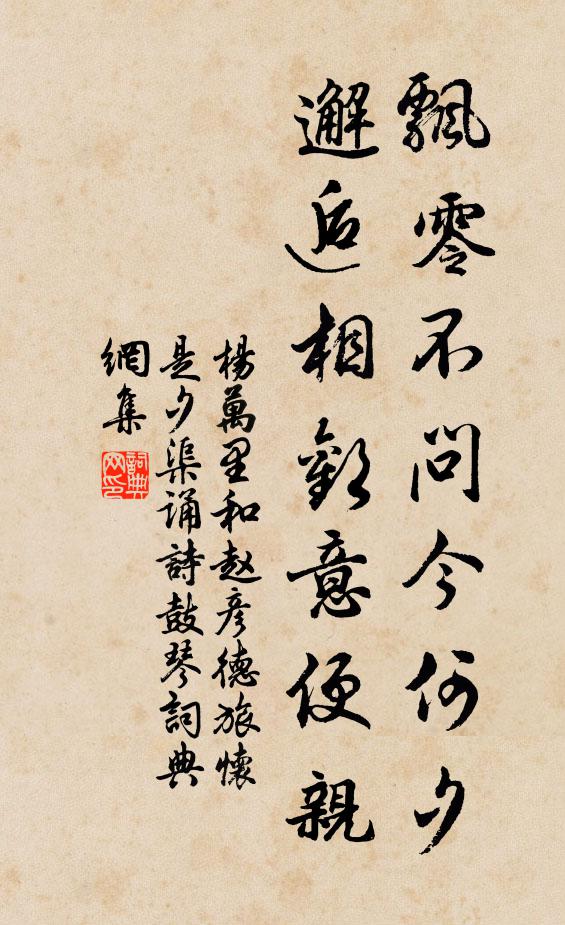 飄零不問今何夕
邂逅相歡意便親
楊萬里和赵彦德旅懷
是夕渠诵詩鼓琴詞典
網集
詞典
网印